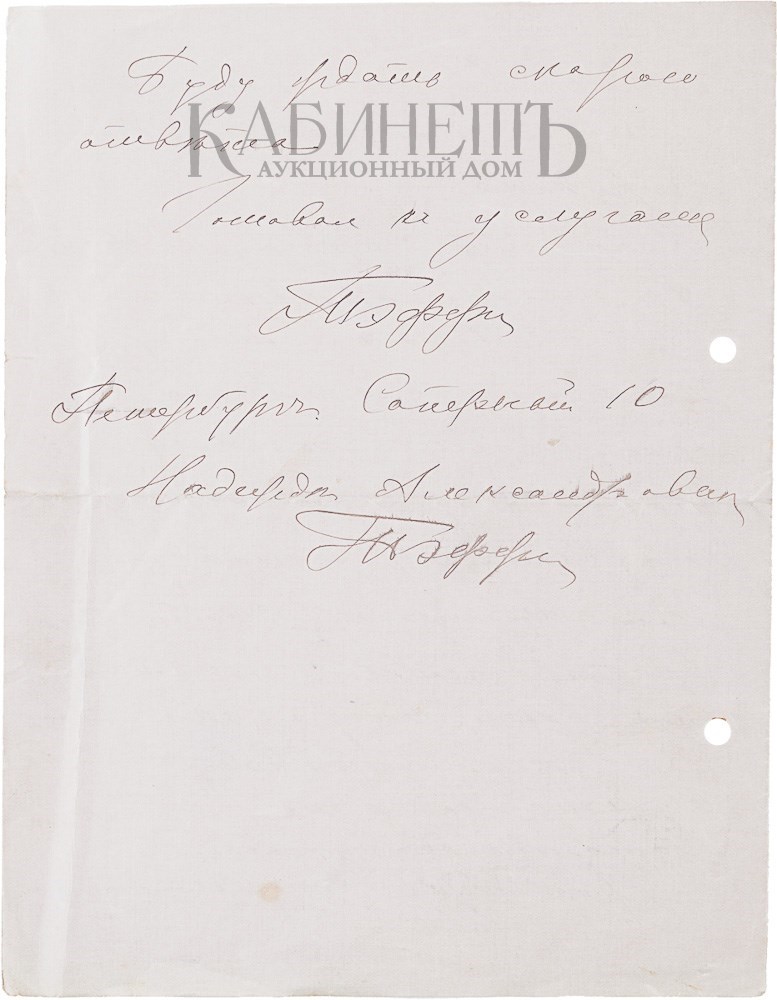 Буду ждать скораго
отвѣта.
КАБИНЕТЪ
АУКЦИОННЫЙ ДОМ
Готовая к услугам
Тэффи
Петербургъ. Саперный 10
Надежда Александровна
Тэффи